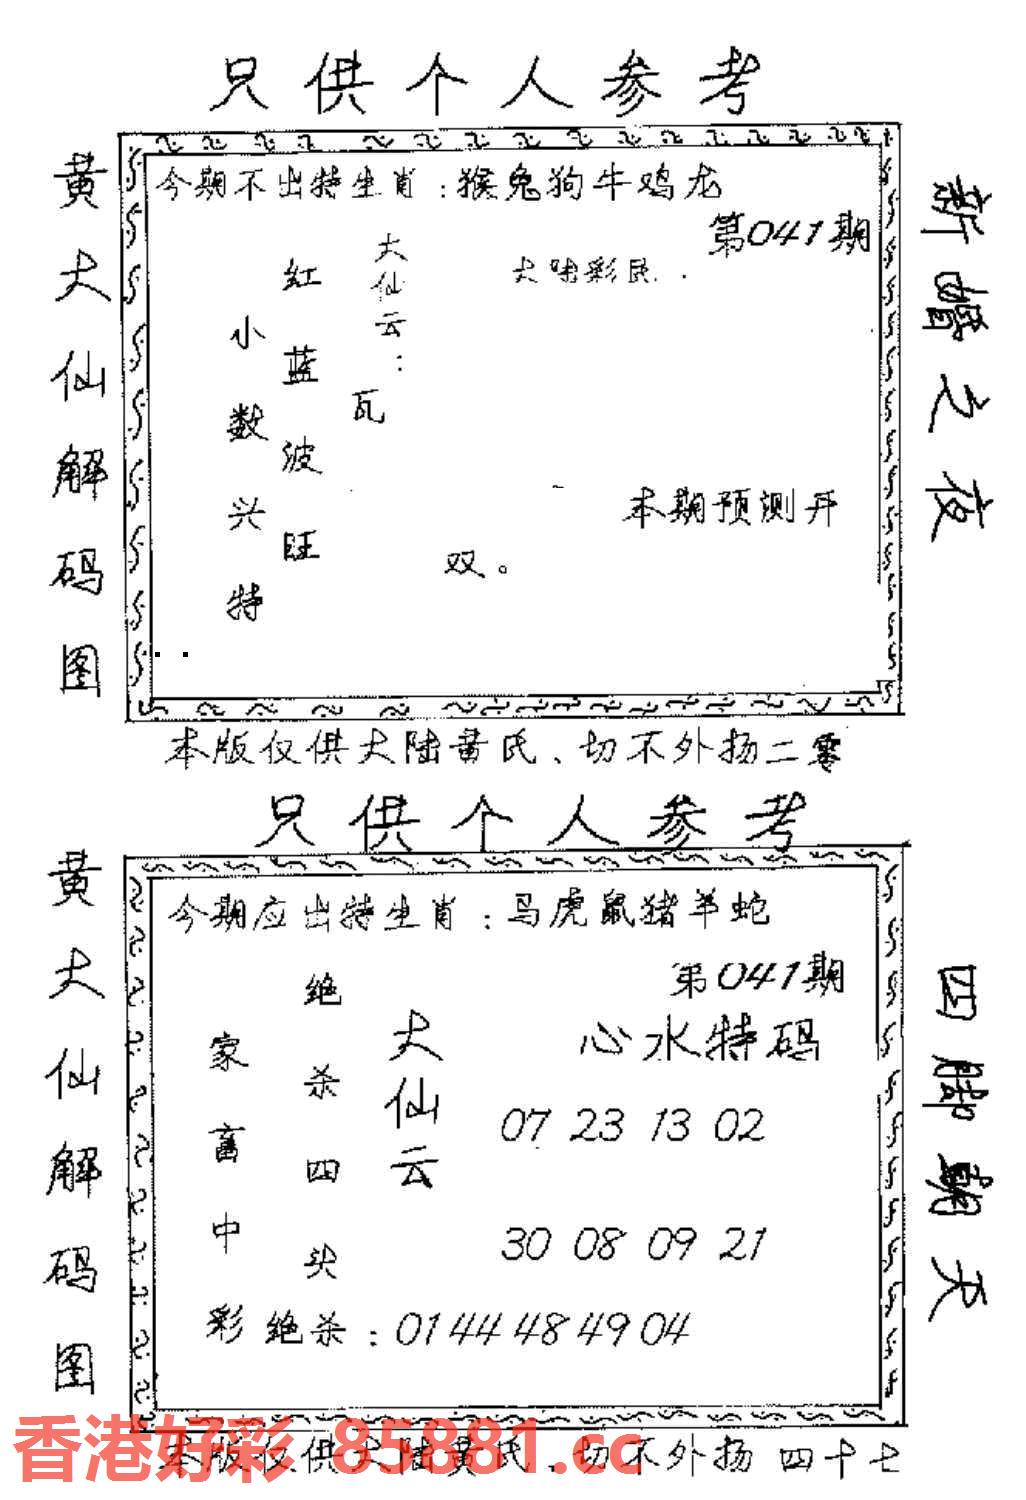 只供个人参考
黄大仙解码图
今期不出特生肖：猴兔狗牛鸡龙
第041期
大陆彩民
大仙云：
红蓝波旺
小数兴特
瓦
本期预测开
双。
新婚之夜
本版仅供大陆黄氏、切不外扬二零
只供个人参考
黄大仙解码图
今期应出特生肖：马虎鼠猪羊蛇
第041期
心水特码
大仙云
绝杀四头
家畜中彩
07 23 13 02
30 08 09 21
绝杀：01 44 48 49 04
四脚朝天
本版仅供大陆黄氏、切不外扬 四十七
香港好彩 85881.cc